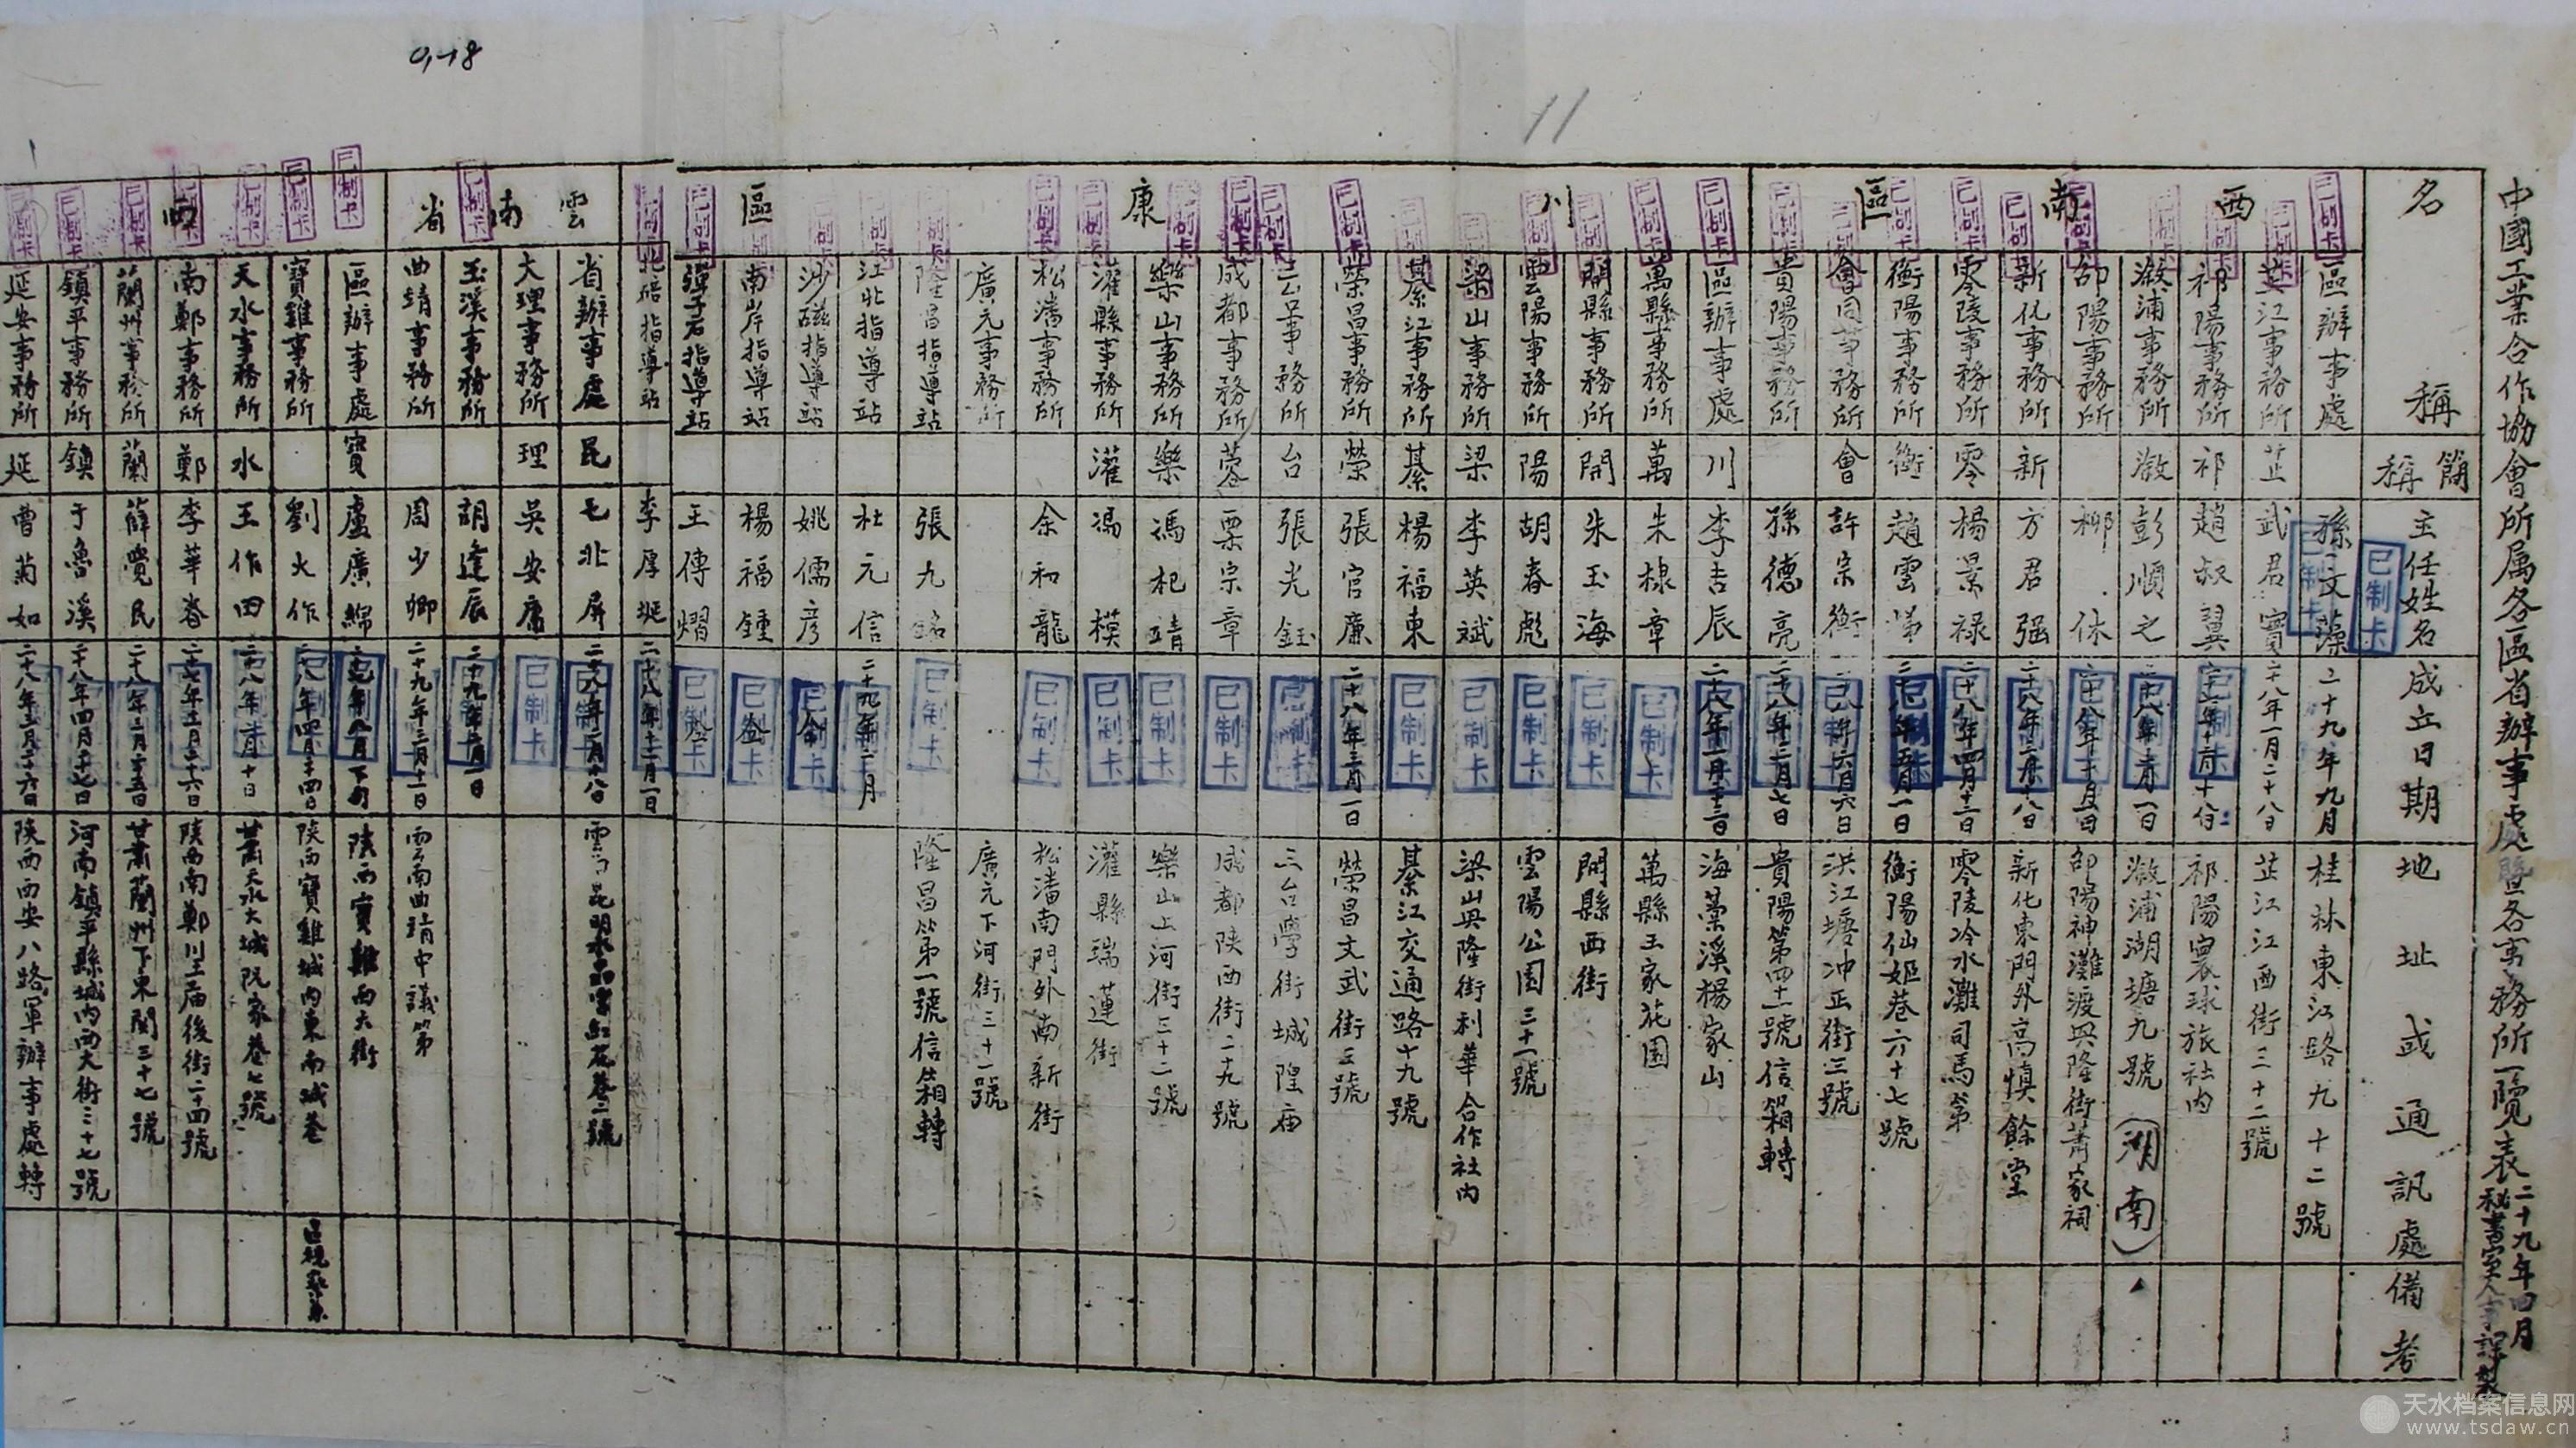 中國工業合作協會所屬各區省辦事處暨各事務所一覽表
二十九年四月
秘書室人事課製
名稱 簡稱 主任姓名 成立日期 地址或通訊處 備考
西南區
區辦事處 孫文藻 二十九年九月 桂林東江路九十二號
芷江事務所 芷 武君實 二十八年一月二十八日 芷江江西街三十二號
祁陽事務所 祁 趙叔翼 祁陽寰球旅社內
漵浦事務所 漵 彭順之 漵浦湖塘九號(湖南)
邵陽事務所 柳休 邵陽神灘渡興隆街蕭家祠
新化事務所 新 方君强 新化東門外高慎餘堂
零陵事務所 零 楊景祿 二十八年四月十三日 零陵冷水灘司馬第
衡陽事務所 衡 趙雲悌 衡陽仙姬巷六十七號
會同事務所 會 許宗衡 洪江塘冲正街三號
貴陽事務所 孫德亮 二十八年二月七日 貴陽第四十一號信箱轉
川康區
區辦事處 川 李吉辰 海棠溪楊家山
萬縣事務所 萬 朱棣章 萬縣王家花園
開縣事務所 開 朱玉海 開縣西街
雲陽事務所 陽 胡春彪 雲陽公園三十一號
梁山事務所 梁 李英斌 梁山興隆街利華合作社內
綦江事務所 綦 楊福東 綦江交通路十九號
榮昌事務所 榮 張官廉 二十八年三月一日 榮昌文武街五號
三台事務所 台 張光鈺 三台學街城隍庙
成都事務所 蓉 栗宗章 成都陝西街二十九號
樂山事務所 樂 馮杞靖 樂山上河街三十二號
灌縣事務所 灌 馮模 灌縣瑞蓮街
松潘事務所 余和龍 松潘南門外南新街
廣元事務所 廣元下河街三十一號
隆昌指導站 張九銘 隆昌第一號信箱轉
江北指導站 杜元信 二十九年二月
沙磁指導站 姚儒彥 仝
南岸指導站 楊福鍾 仝
彈子石指導站 王傳熠 仝
北碚指導站 李厚埏 二十八年十二月一日
雲南省
省辦事處 昆 毛北屏
大理事務所 理 吳安庸
玉溪事務所 胡達辰
曲靖事務所 周少卿 二十九年三月十一日 雲南曲靖中議第
西
區辦事處 寶 盧廣綿 陝西寶雞西大街
寶雞事務所 劉大作 陝西寶雞城內東南城巷
天水事務所 水 王作田 甘肅天水大城阮家巷七號
南鄭事務所 鄭 李華春 陝西南鄭川主庙後街二十四號
蘭州事務所 蘭 薛覺民 甘肅蘭州下東關三十七號
鎮平事務所 鎮 于魯溪 二十八年四月十七日 河南鎮平縣城內西大街三十七號
延安事務所 延 曹菊如 陝西西安八路軍辦事處轉
已制卡
11
天水档案信息网
www.tsdaw.cn